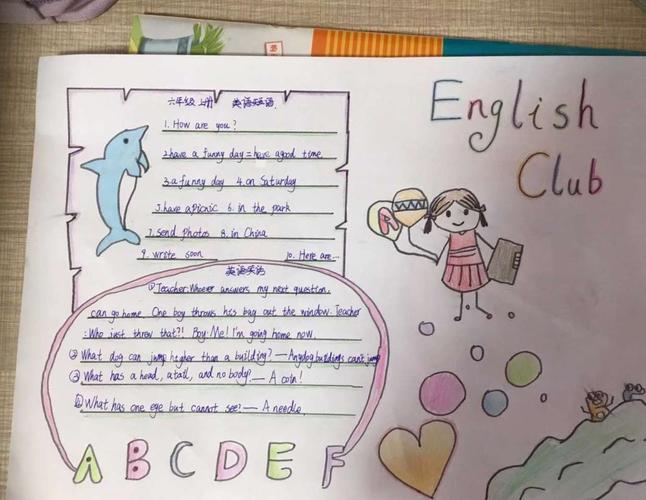 English
Club
六年级上册 英语短语
1. How are you?
2. have a funny day = have a good time
3. a funny day 4. on Saturday
5. have a picnic 6. in the park
7. send photos 8. in China
9. write soon 10. Here are...
英语笑话
① Teacher: Whoever answers my next question.
can go home. One boy throws his bag out the window. Teacher
: Who just threw that?! Boy: Me! I'm going home now.
② What dog can jump higher than a building? — Any dog, buildings can't jump
③ What has a head, a tail, and no body? — A coin!
④ What has one eye but cannot see? — A needle.
A B C D E F